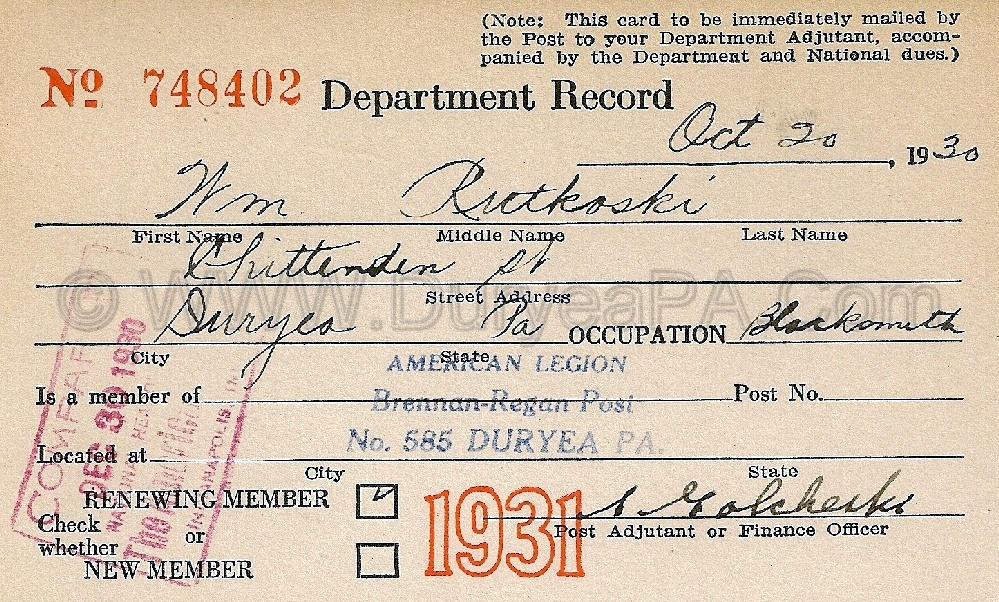 (Note: This card to be immediately mailed by
the Post to your Department Adjutant, accom-
panied by the Department and National dues.)
No 748402 Department Record
Oct 20, 1930
Wm Rutkoski
First Name Middle Name Last Name
Chittenden St
Street Address
© WWW.DuryeaPA.Com
Duryea Pa OCCUPATION Blacksmith
City State
AMERICAN LEGION
Is a member of Brennan-Regan Post Post No.
No. 585 DURYEA PA.
Located at
City State
COMPARED
DEC 30 1930
INDIANAPOLIS IND
RENEWING MEMBER
Check
whether or
NEW MEMBER
1931
Post Adjutant or Finance Officer